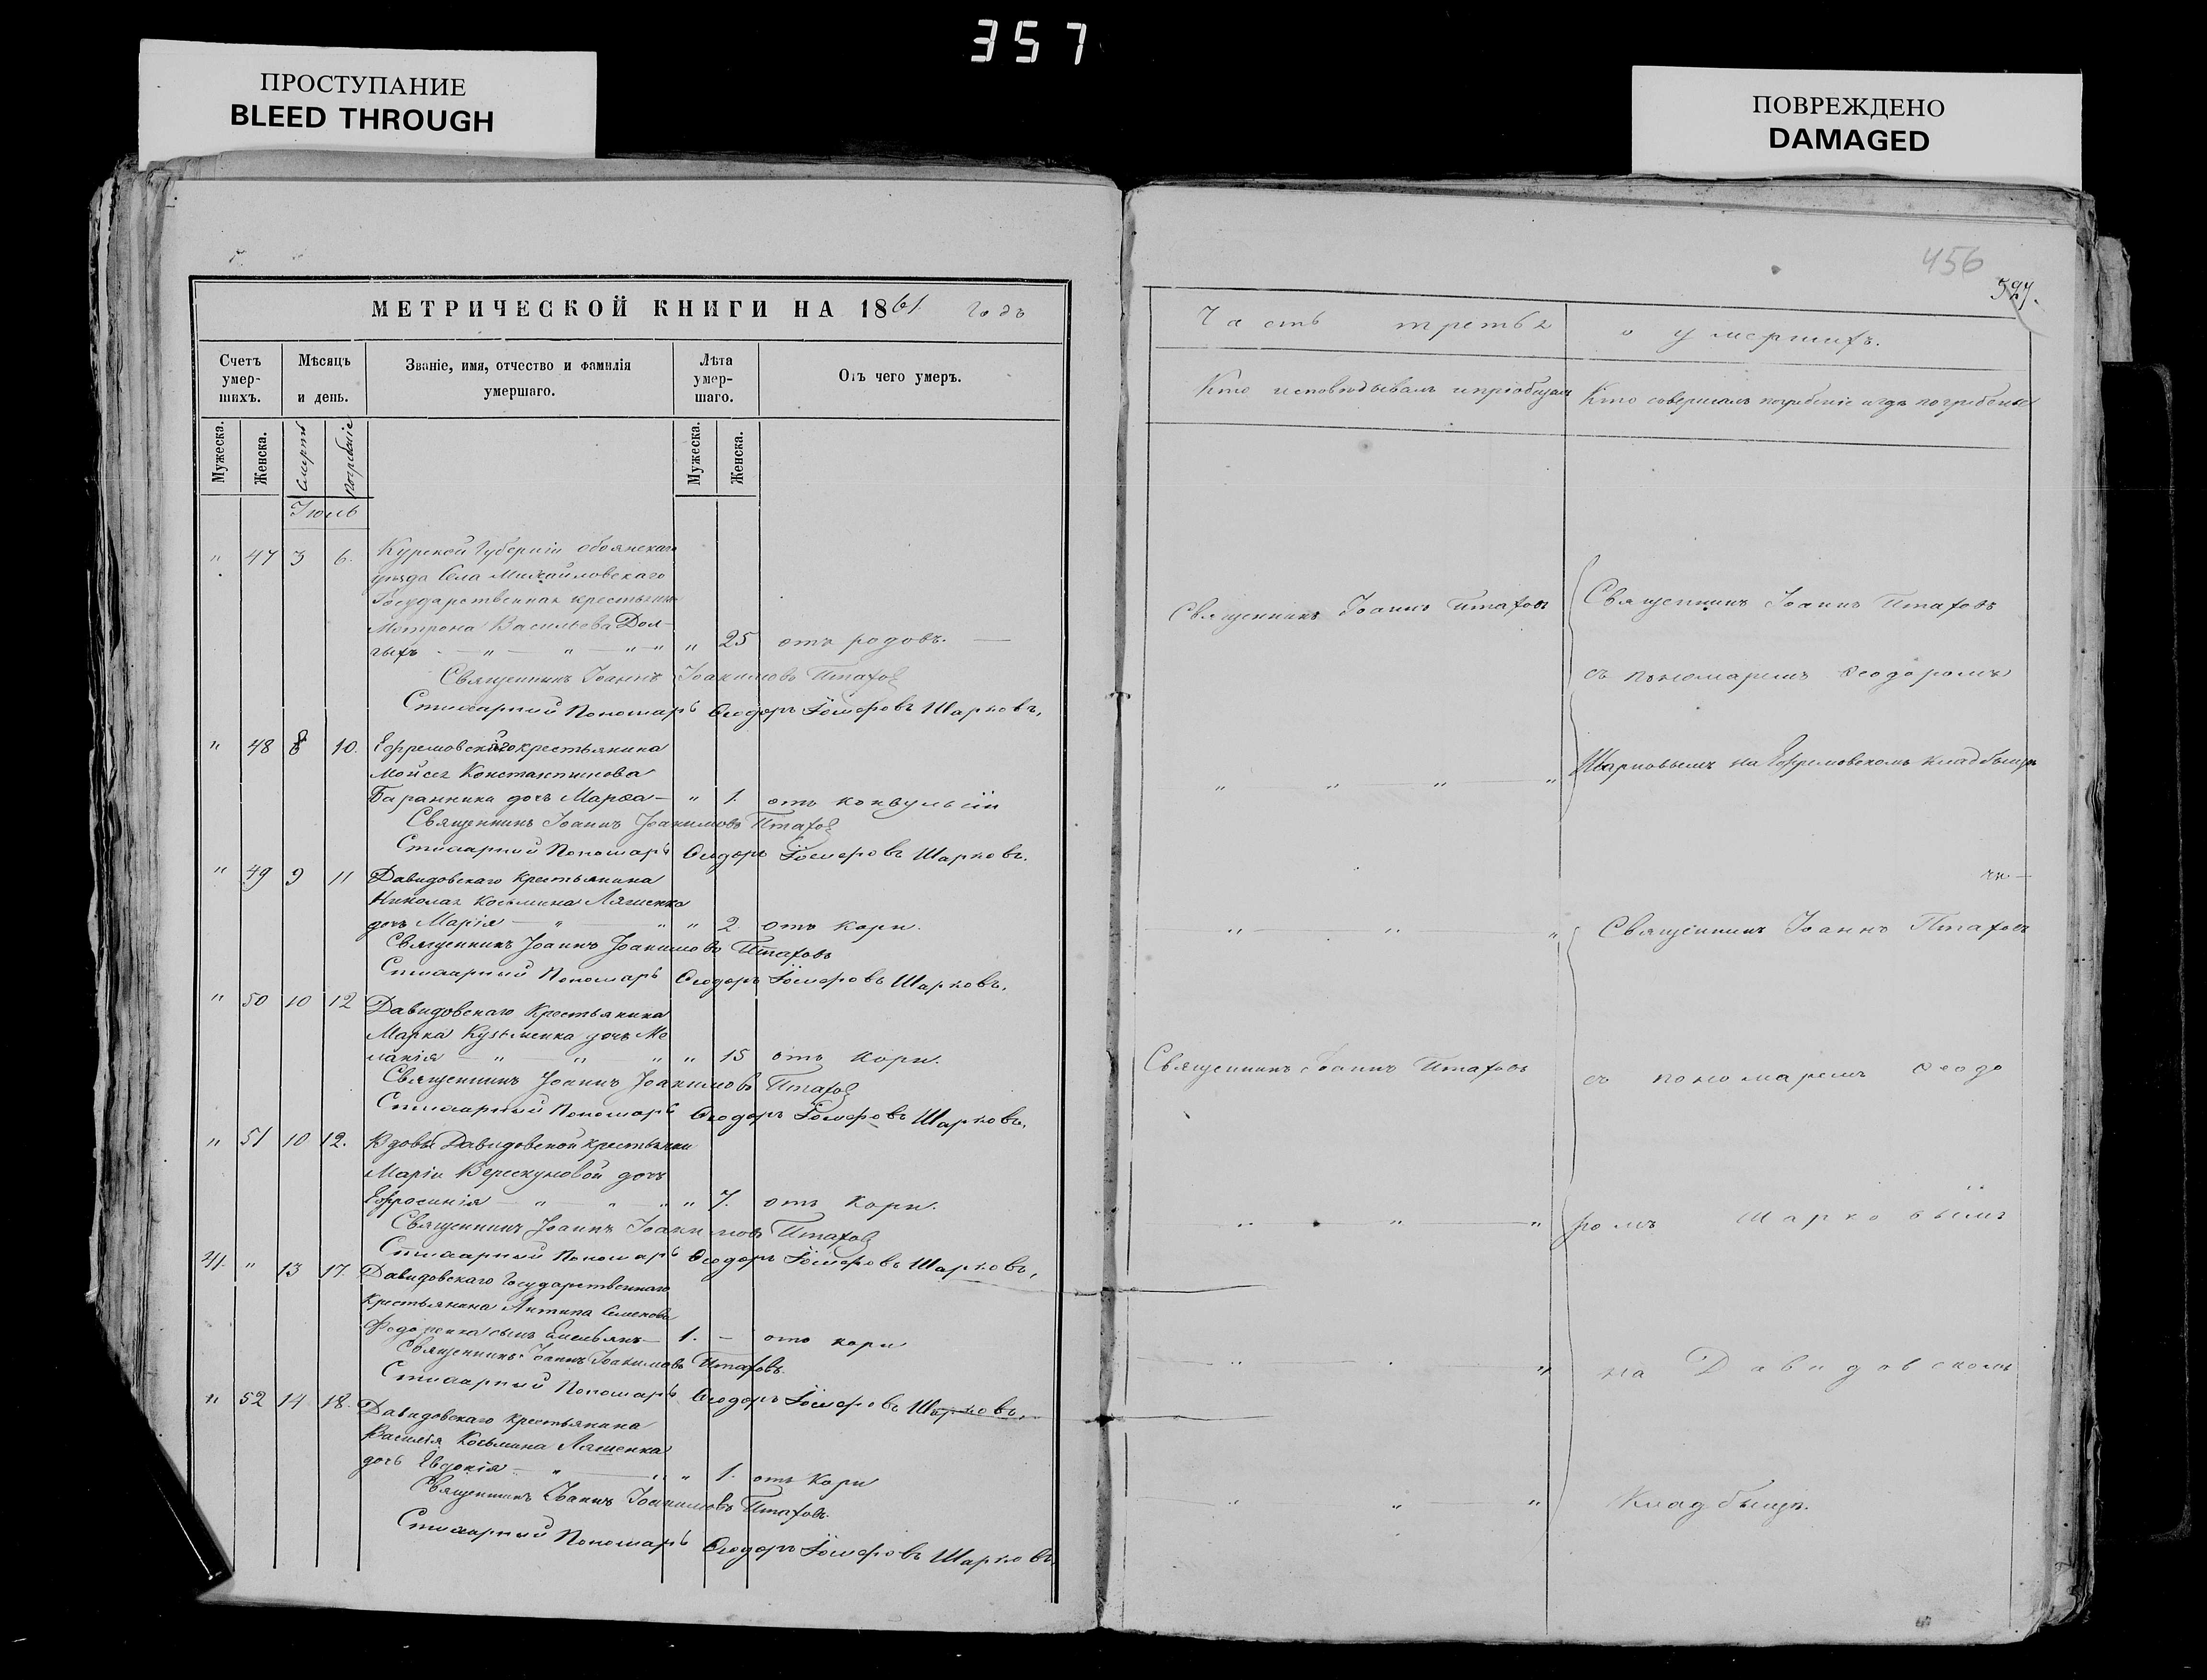 357
ПРОСТУПАНИЕ
BLEED THROUGH
ПОВРЕЖДЕНО
DAMAGED
МЕТРИЧЕСКОЙ КНИГИ НА 1861. годъ
Счетъ умер- шихъ.
Мѣсяцъ и день.
Званіе, имя, отчество и фамилія умершаго.
Лѣта умер- шаго.
Отъ чего умеръ.
Мужеска.
Женска.
Смерть
погребеніе
Мужеска.
Женска.
Іюль
" 47 3 6. Курской Губерніи обоянскаго
уѣзда Села Михайловскаго
Государственная крестьянка
Матрона Васильева Дол-
гихъ " " " " " 25 отъ родовъ.
Священникъ Іоаннъ Іоакимовъ Птахов
Стихарный Пономарь Ѳеодоръ Іосифовъ Шарковъ.
" 48 8 10. Ефремовскаго крестьянина
Моисея Константинова
Баранника дочь Марѳа " 1. отъ конвульсіи
Священникъ Іоаннъ Іоакимовъ Птахов
Стихарный Пономарь Ѳеодоръ Іосифовъ Шарковъ.
" 49 9 11 Давидовскаго крестьянина
Николая Косьмина Ляшенка
дочь Марія " " " 2 отъ кори.
Священникъ Іоаннъ Іоакимовъ Птаховъ
Стихарный Пономарь Ѳеодоръ Іосифовъ Шарковъ.
" 50 10 12 Давидовскаго Крестьянина
Марка Кузьменка дочь Ме
ланія " " " " 15 отъ кори.
Священникъ Іоаннъ Іоакимовъ Птахов
Стихарный Пономарь Ѳеодоръ Іосифовъ Шарковъ.
" 51 10 12. Вдовы Давидовской крестьянки
Маріи Верескуновой дочь
Ефросинія " " " " 7. отъ кори.
Священникъ Іоаннъ Іоакимовъ Птахов
Стихарный Пономарь Ѳеодоръ Іосифовъ Шарковъ.
" 13 17. Давидовскаго Государственнаго
Крестьянина Антипа Семенова
Федоренка сынъ Емельянъ 1. - отъ кори
Священникъ Іоаннъ Іоакимовъ Птаховъ.
Стихарный Пономарь Ѳеодоръ Іосифовъ Шарковъ.
" 52 14 18. Давидовскаго крестьянина
Василія Косьмина Ляшенка
дочь Евдокія " " " 1. отъ Кори
Священникъ Іоаннъ Іоакимовъ Птаховъ.
Стихарный Пономарь Ѳеодоръ Іосифовъ Шарковъ.
456
527.
Часть третья о умершихъ.
Кто исповѣдывалъ и пріобщалъ
Кто совершалъ погребеніе и гдѣ погребены
Священникъ Іоаннъ Птаховъ
Священникъ Іоаннъ Птаховъ
съ пономаремъ Ѳеодоромъ
" " " " Шарковымъ на Ефремовскомъ кладбищѣ
" " "
Священникъ Іоаннъ Птаховъ
Священникъ Іоаннъ Птаховъ
съ пономаремъ Ѳеодо
" " " ромъ Шарковымъ
" " на Давидовскомъ
" " " Кладбищѣ.